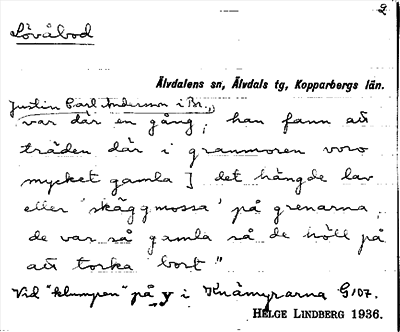 2
Lövåbod
Älvdalens sn, Älvdals tg, Kopparbergs län.
Justin Carl Andersson i Br.,
var där en gång; han fann att
träden där i granmoren voro
mycket gamla] det hängde lav
eller 'skäggmossa' på grenarna,
de var så gamla så de höll på
att torka bort"
Vid "klumpen" på y i Knämyrarna G107.
HELGE LINDBERG 1936.